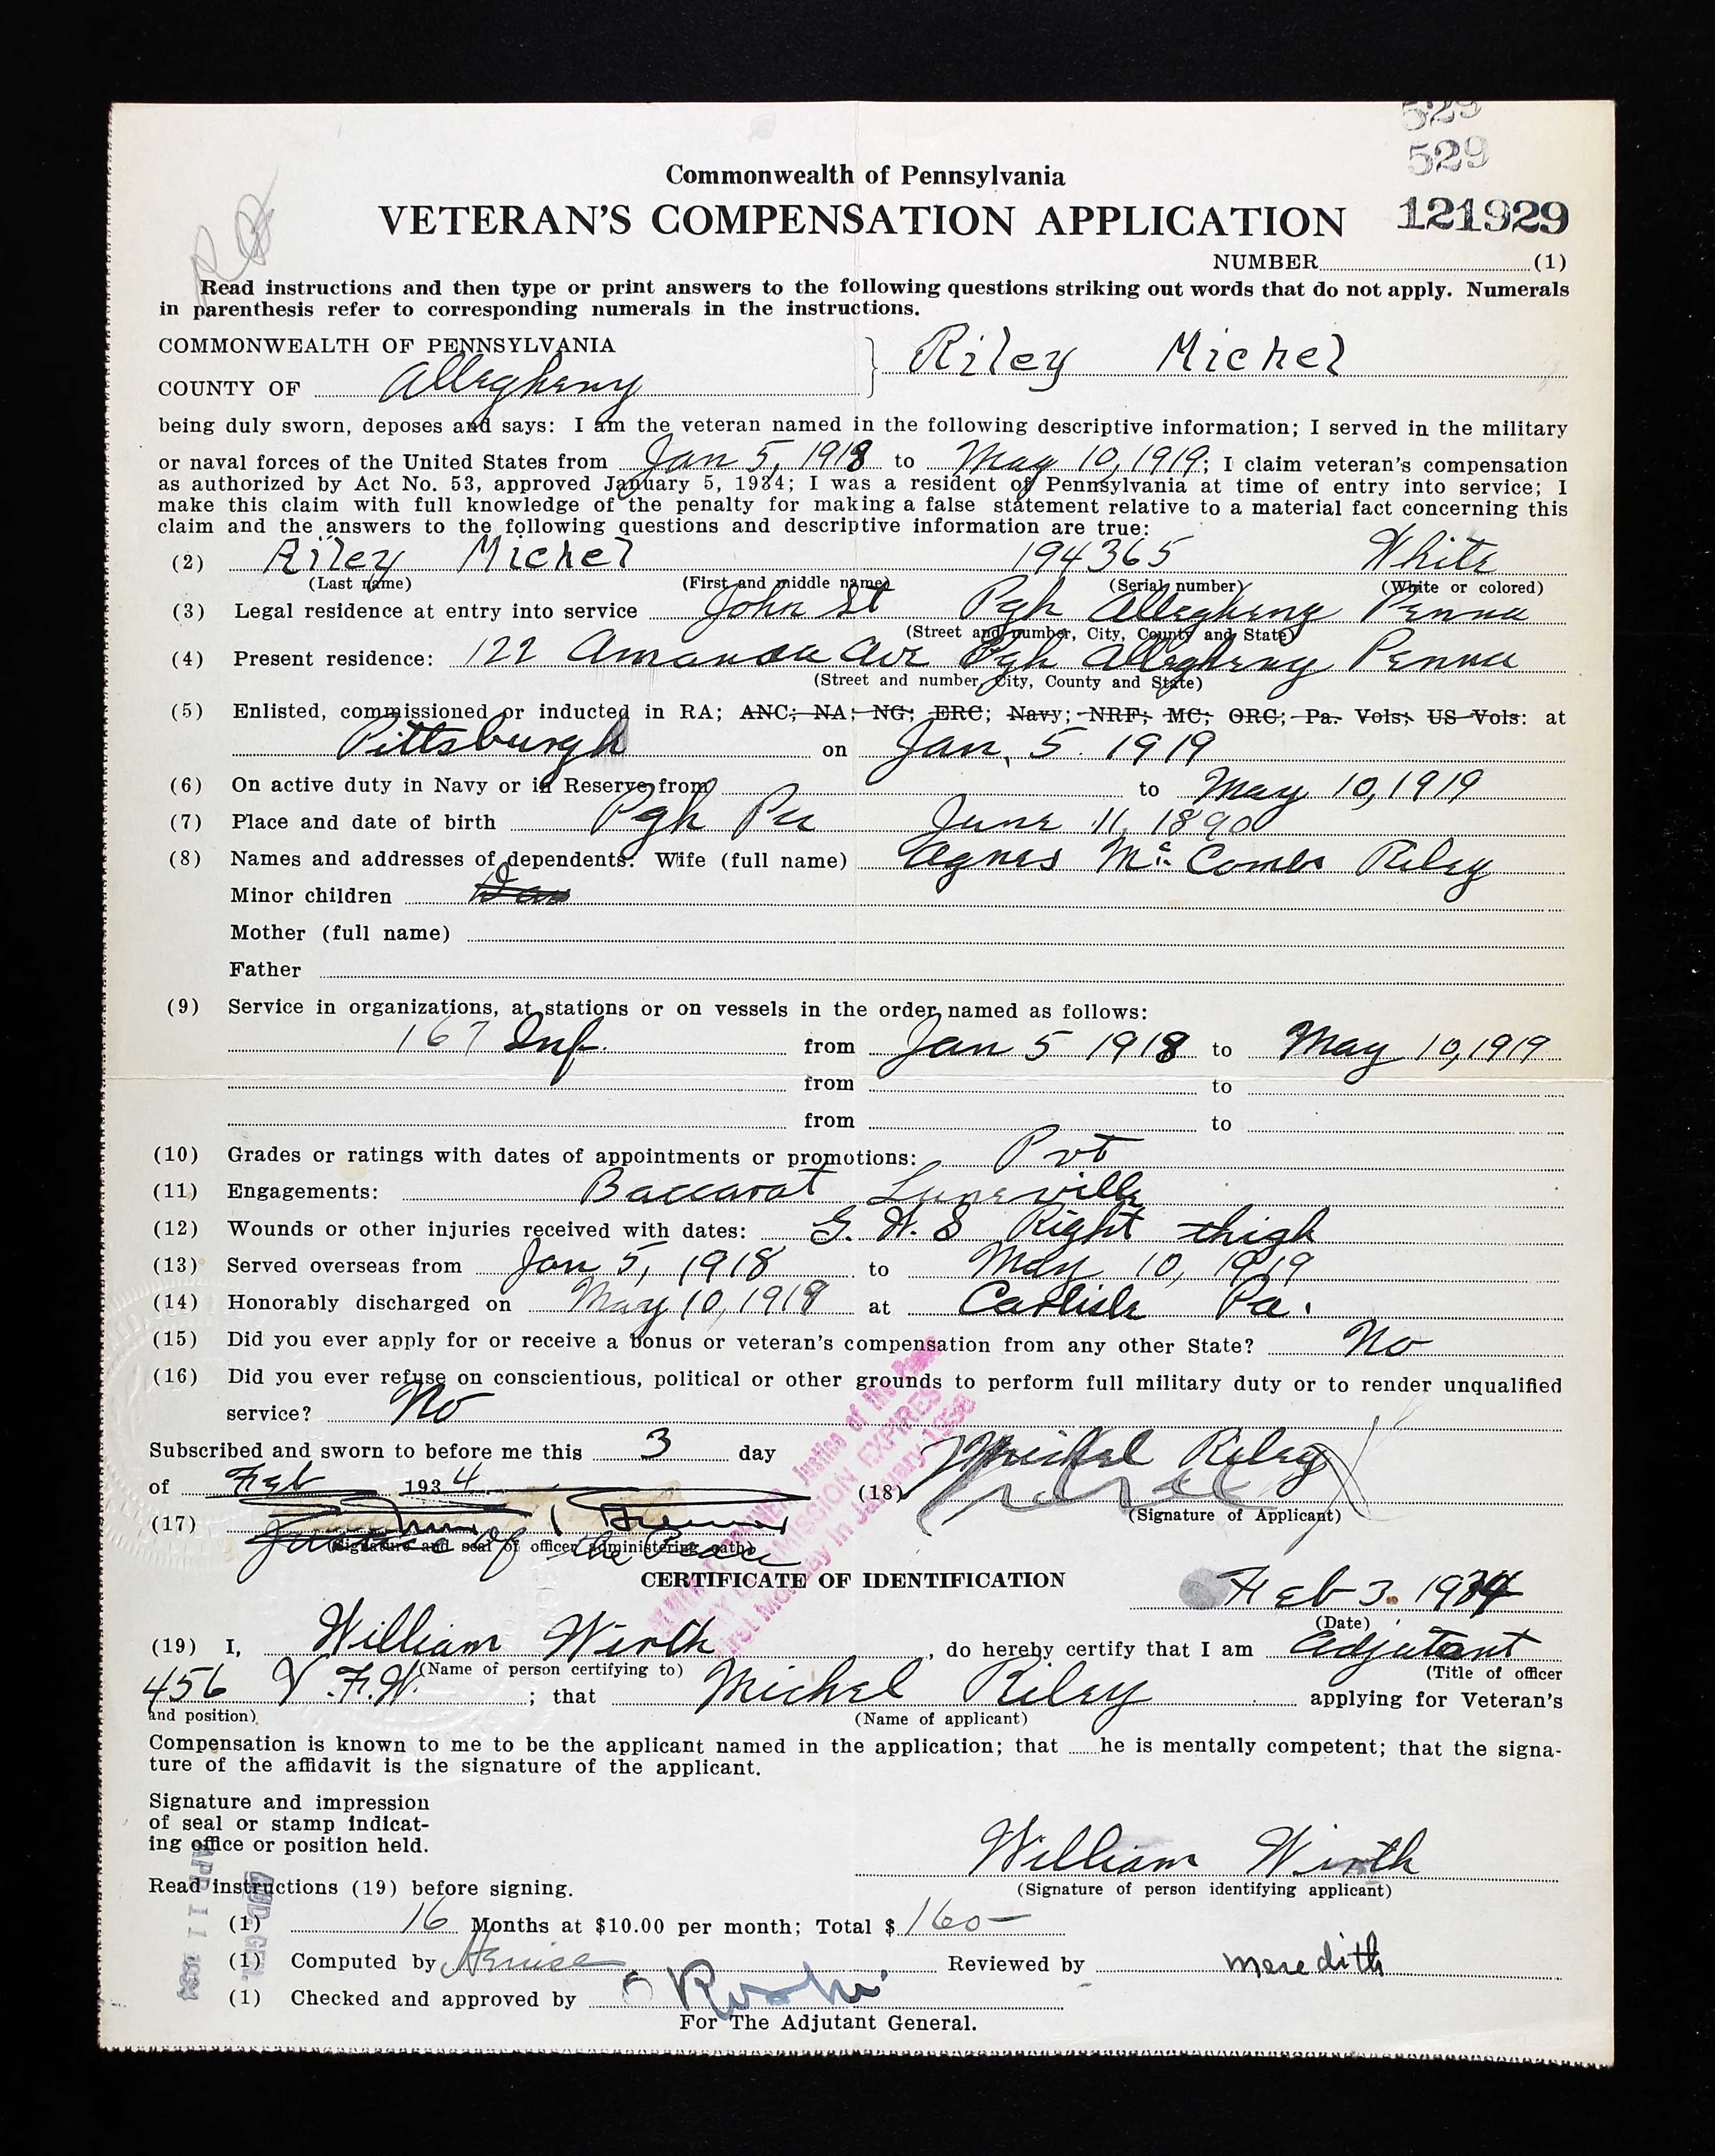 529
529
Commonwealth of Pennsylvania
VETERAN'S COMPENSATION APPLICATION 121929
NUMBER (1)
Read instructions and then type or print answers to the following questions striking out words that do not apply. Numerals
in parenthesis refer to corresponding numerals in the instructions.
COMMONWEALTH OF PENNSYLVANIA
COUNTY OF Allegheny } Riley Michel
being duly sworn, deposes and says: I am the veteran named in the following descriptive information; I served in the military
or naval forces of the United States from Jan 5, 1918 to May 10, 1919; I claim veteran's compensation
as authorized by Act No. 53, approved January 5, 1934; I was a resident of Pennsylvania at time of entry into service; I
make this claim with full knowledge of the penalty for making a false statement relative to a material fact concerning this
claim and the answers to the following questions and descriptive information are true:
(2) Riley Michel 194365 White
(Last name) (First and middle name) (Serial number) (White or colored)
(3) Legal residence at entry into service John St Pgh Allegheny Penna
(Street and number, City, County and State)
(4) Present residence: 122 Amanda Ave Pgh Allegheny Penna
(Street and number, City, County and State)
(5) Enlisted, commissioned or inducted in RA; ANC; NA; NG; ERC; Navy; NRF; MC; ORC; Pa. Vols; US Vols: at
Pittsburgh on Jan, 5. 1919
(6) On active duty in Navy or in Reserve from to May 10, 1919
(7) Place and date of birth Pgh Pa June 11, 1890
(8) Names and addresses of dependents: Wife (full name) Agnes McCombs Riley
Minor children
Mother (full name)
Father
(9) Service in organizations, at stations or on vessels in the order named as follows:
167 Inf. from Jan 5 1918 to May 10, 1919
from to
from to
(10) Grades or ratings with dates of appointments or promotions: Pvt
(11) Engagements: Baccarat Luneville
(12) Wounds or other injuries received with dates: G. W. S Right thigh
(13) Served overseas from Jan 5, 1918 to May 10, 1919
(14) Honorably discharged on May 10, 1919 at Carlisle Pa.
(15) Did you ever apply for or receive a bonus or veteran's compensation from any other State? No
(16) Did you ever refuse on conscientious, political or other grounds to perform full military duty or to render unqualified
service? No
Subscribed and sworn to before me this 3 day
of Feb 1934
(18) Michel Riley
(Signature of Applicant)
(17)
Justice of the Peace
(Signature and seal of officer administering oath)
Justice of the Peace
MY COMMISSION EXPIRES
First Monday in January 1938
CERTIFICATE OF IDENTIFICATION
Feb 3. 1934
(Date)
(19) I, William Wirth, do hereby certify that I am Adjutant
(Name of person certifying to) (Title of officer
456 V.F.W. ; that Michel Riley applying for Veteran's
and position) (Name of applicant)
Compensation is known to me to be the applicant named in the application; that he is mentally competent; that the signa-
ture of the affidavit is the signature of the applicant.
Signature and impression
of seal or stamp indicat-
ing office or position held.
William Wirth
Read instructions (19) before signing.
(Signature of person identifying applicant)
(1) 16 Months at $10.00 per month; Total $ 160-
(1) Computed by Reviewed by Meredith
(1) Checked and approved by
For The Adjutant General.